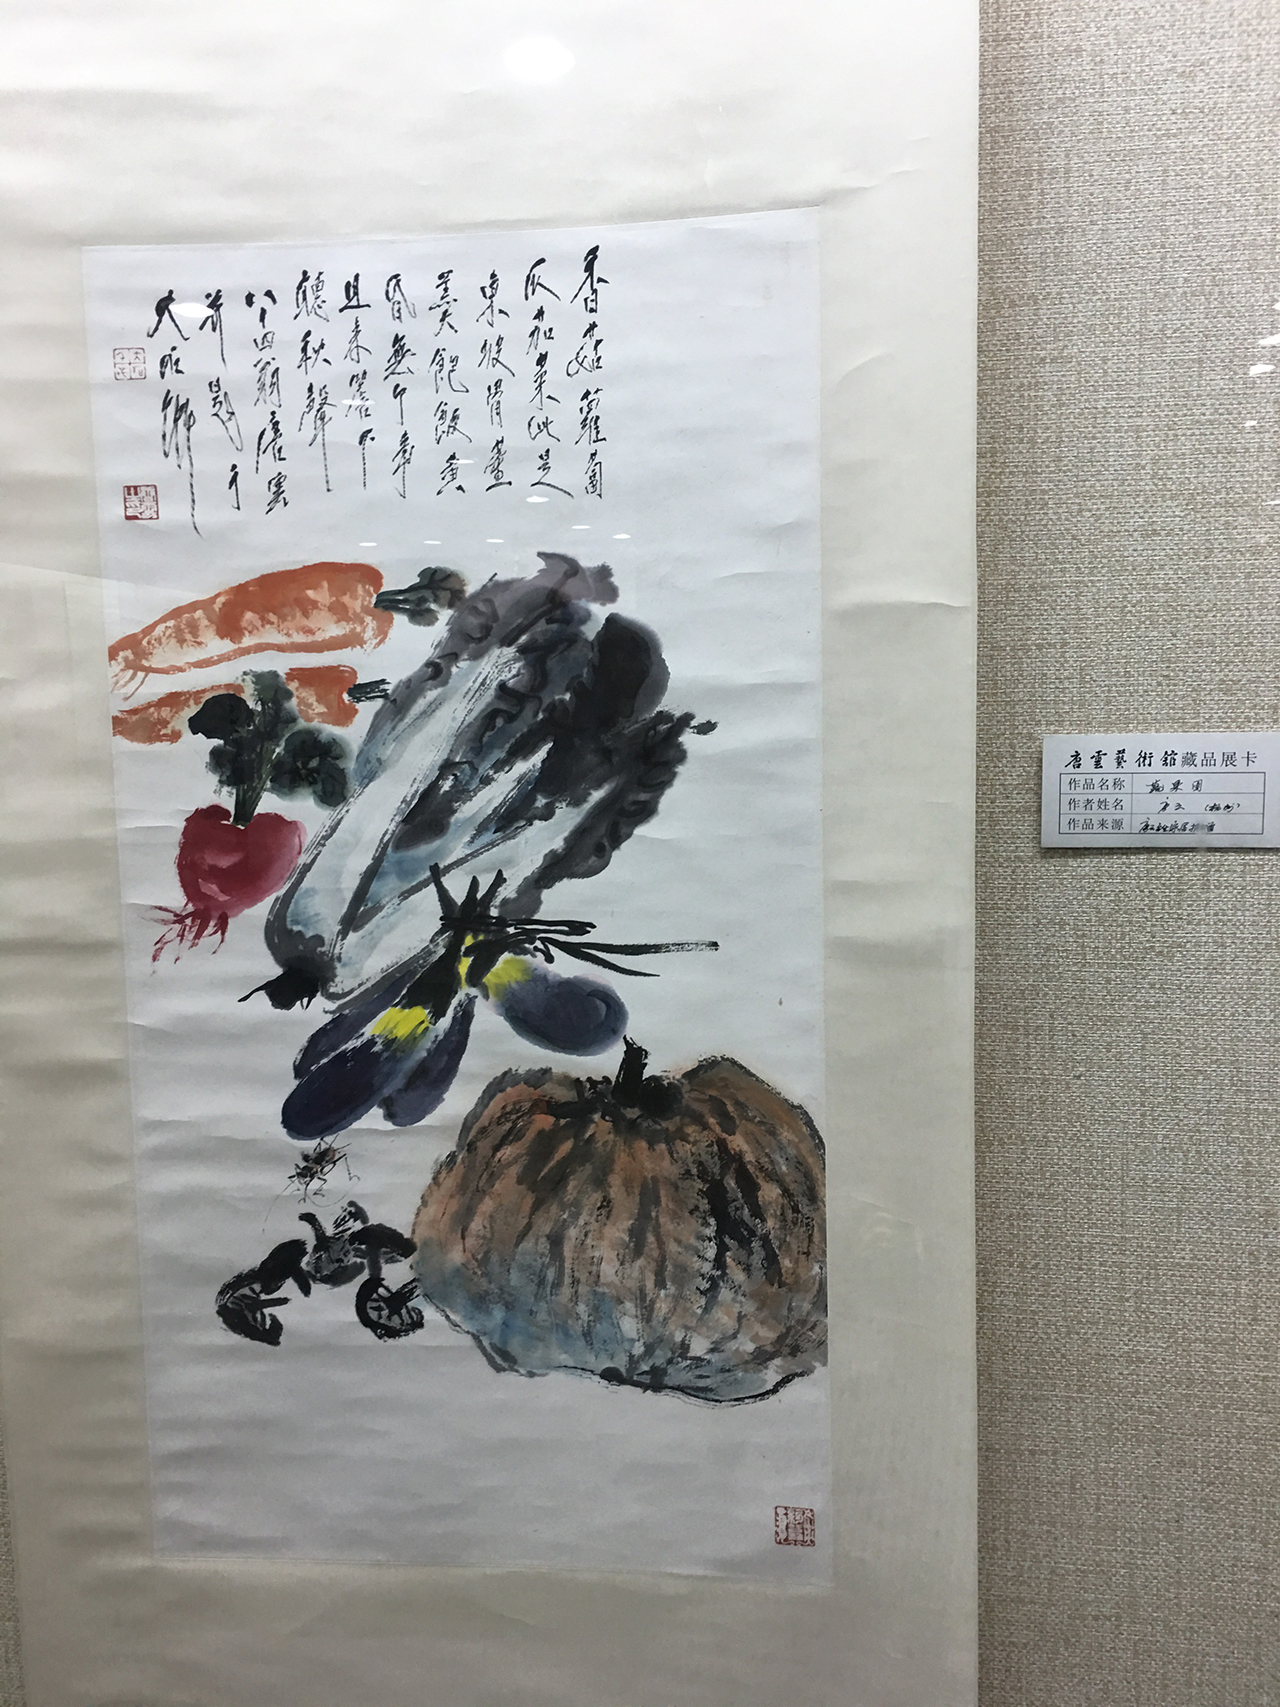 香菇蘿蔔
瓜茄菜此是
東坡骨董
羹飽飯黃
昏無个事
且來簷下
聽秋聲
八十四翁唐雲
並題于
大石齋
唐雲藝術館藏品展卡
作品名称 蔬果图
作者姓名 唐云
作品来源